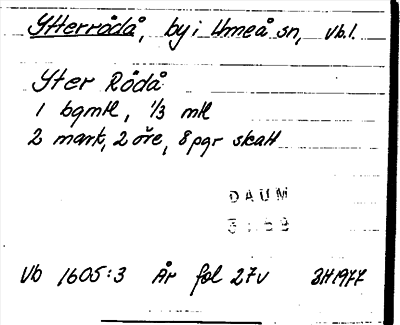 Ytterrödå, by i Umeå sn, Vb.l.
Yter Rödå
1 bgmtl, 1/3 mtl
2 mark, 2 öre, 8 pgr skatt
DAUM
Vb 1605:3 År fol 27v BH 1977